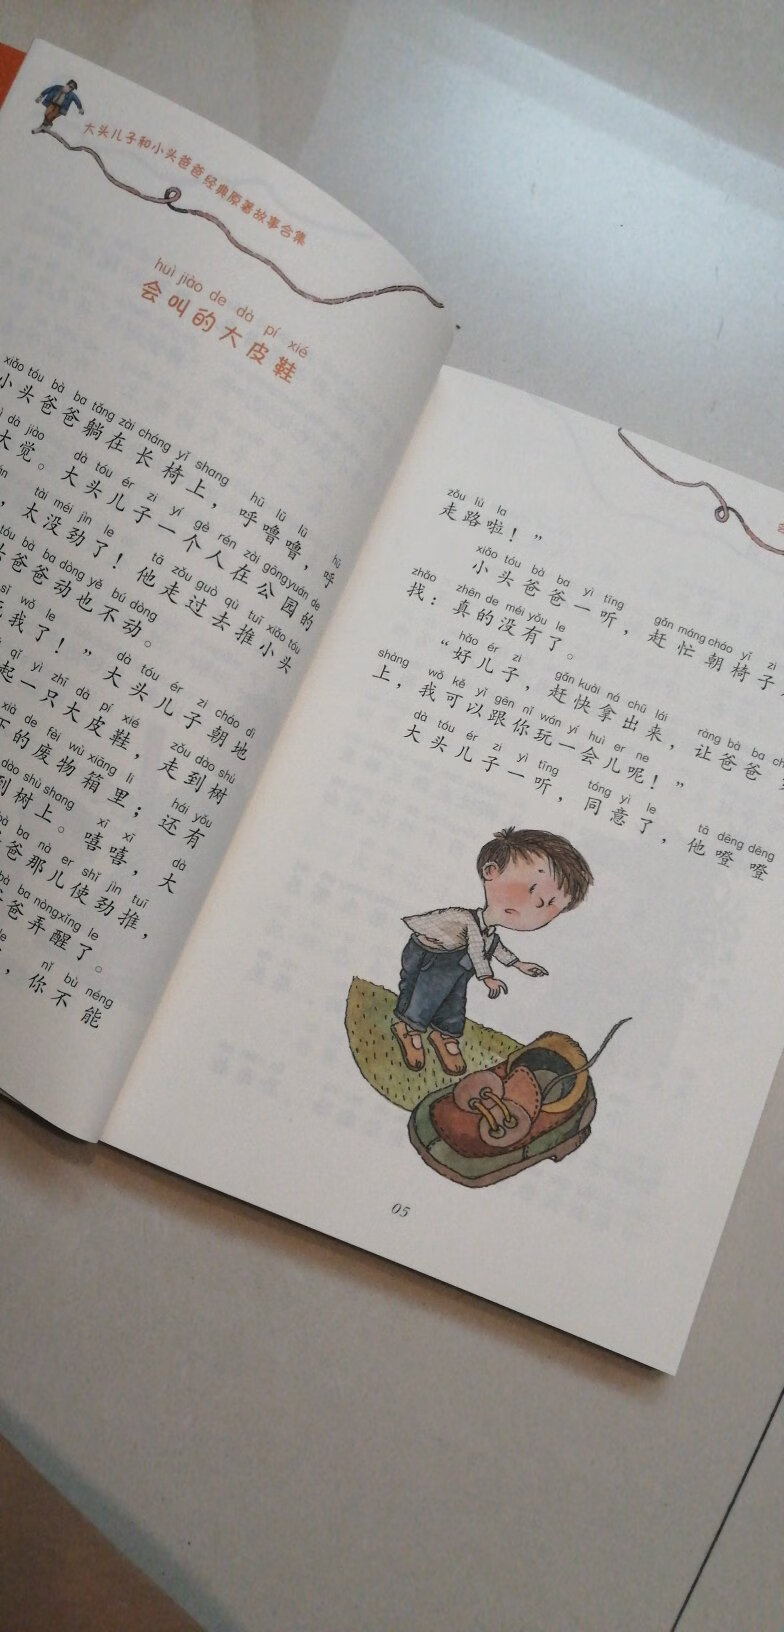 大头儿子和小头爸爸经典原著故事合集
huì jiào de dà pí xié
会叫的大皮鞋
xiǎo tóu bà ba tǎng zài cháng yǐ shang hū lū lū hū
小头爸爸躺在长椅上，呼噜噜，呼
dà jiào dà tóu ér zi yí gè rén zài gōngyuán de
大觉。大头儿子一个人在公园的
tài méi jìn le tā zǒu guò qù tuī xiǎo tóu
，太没劲了！他走过去推小头
bà ba dòng yě bú dòng
爸爸动也不动。
wǒ le dà tóu ér zi cháo dì
我了！”大头儿子朝地
qǐ yì zhī dà pí xié zǒu dào shù
起一只大皮鞋，走到树
xià de fèi wù xiāng li hái yǒu
下的废物箱里；还有
dào shù shang xī xī dà
到树上。嘻嘻，大
bà ba nà er shǐ jìn tuī
爸爸那儿使劲推，
bà ba nòngxǐng le
爸爸弄醒了。
le nǐ bù néng
，你不能
zǒu lù la
走路啦！”
xiǎo tóu bà ba yì tīng gǎn máng cháo yǐ zi
小头爸爸一听，赶忙朝椅子
zhǎo zhēn de méi yǒu le
找：真的没有了。
hǎo ér zi gǎn kuài ná chū lái ràng bà ba
“好儿子，赶快拿出来，让爸爸
shàng wǒ kě yǐ gēn nǐ wán yí huì er ne
上，我可以跟你玩一会儿呢！”
dà tóu ér zi yì tīng tóng yì le tā dēng dēng
大头儿子一听，同意了，他噔噔
05